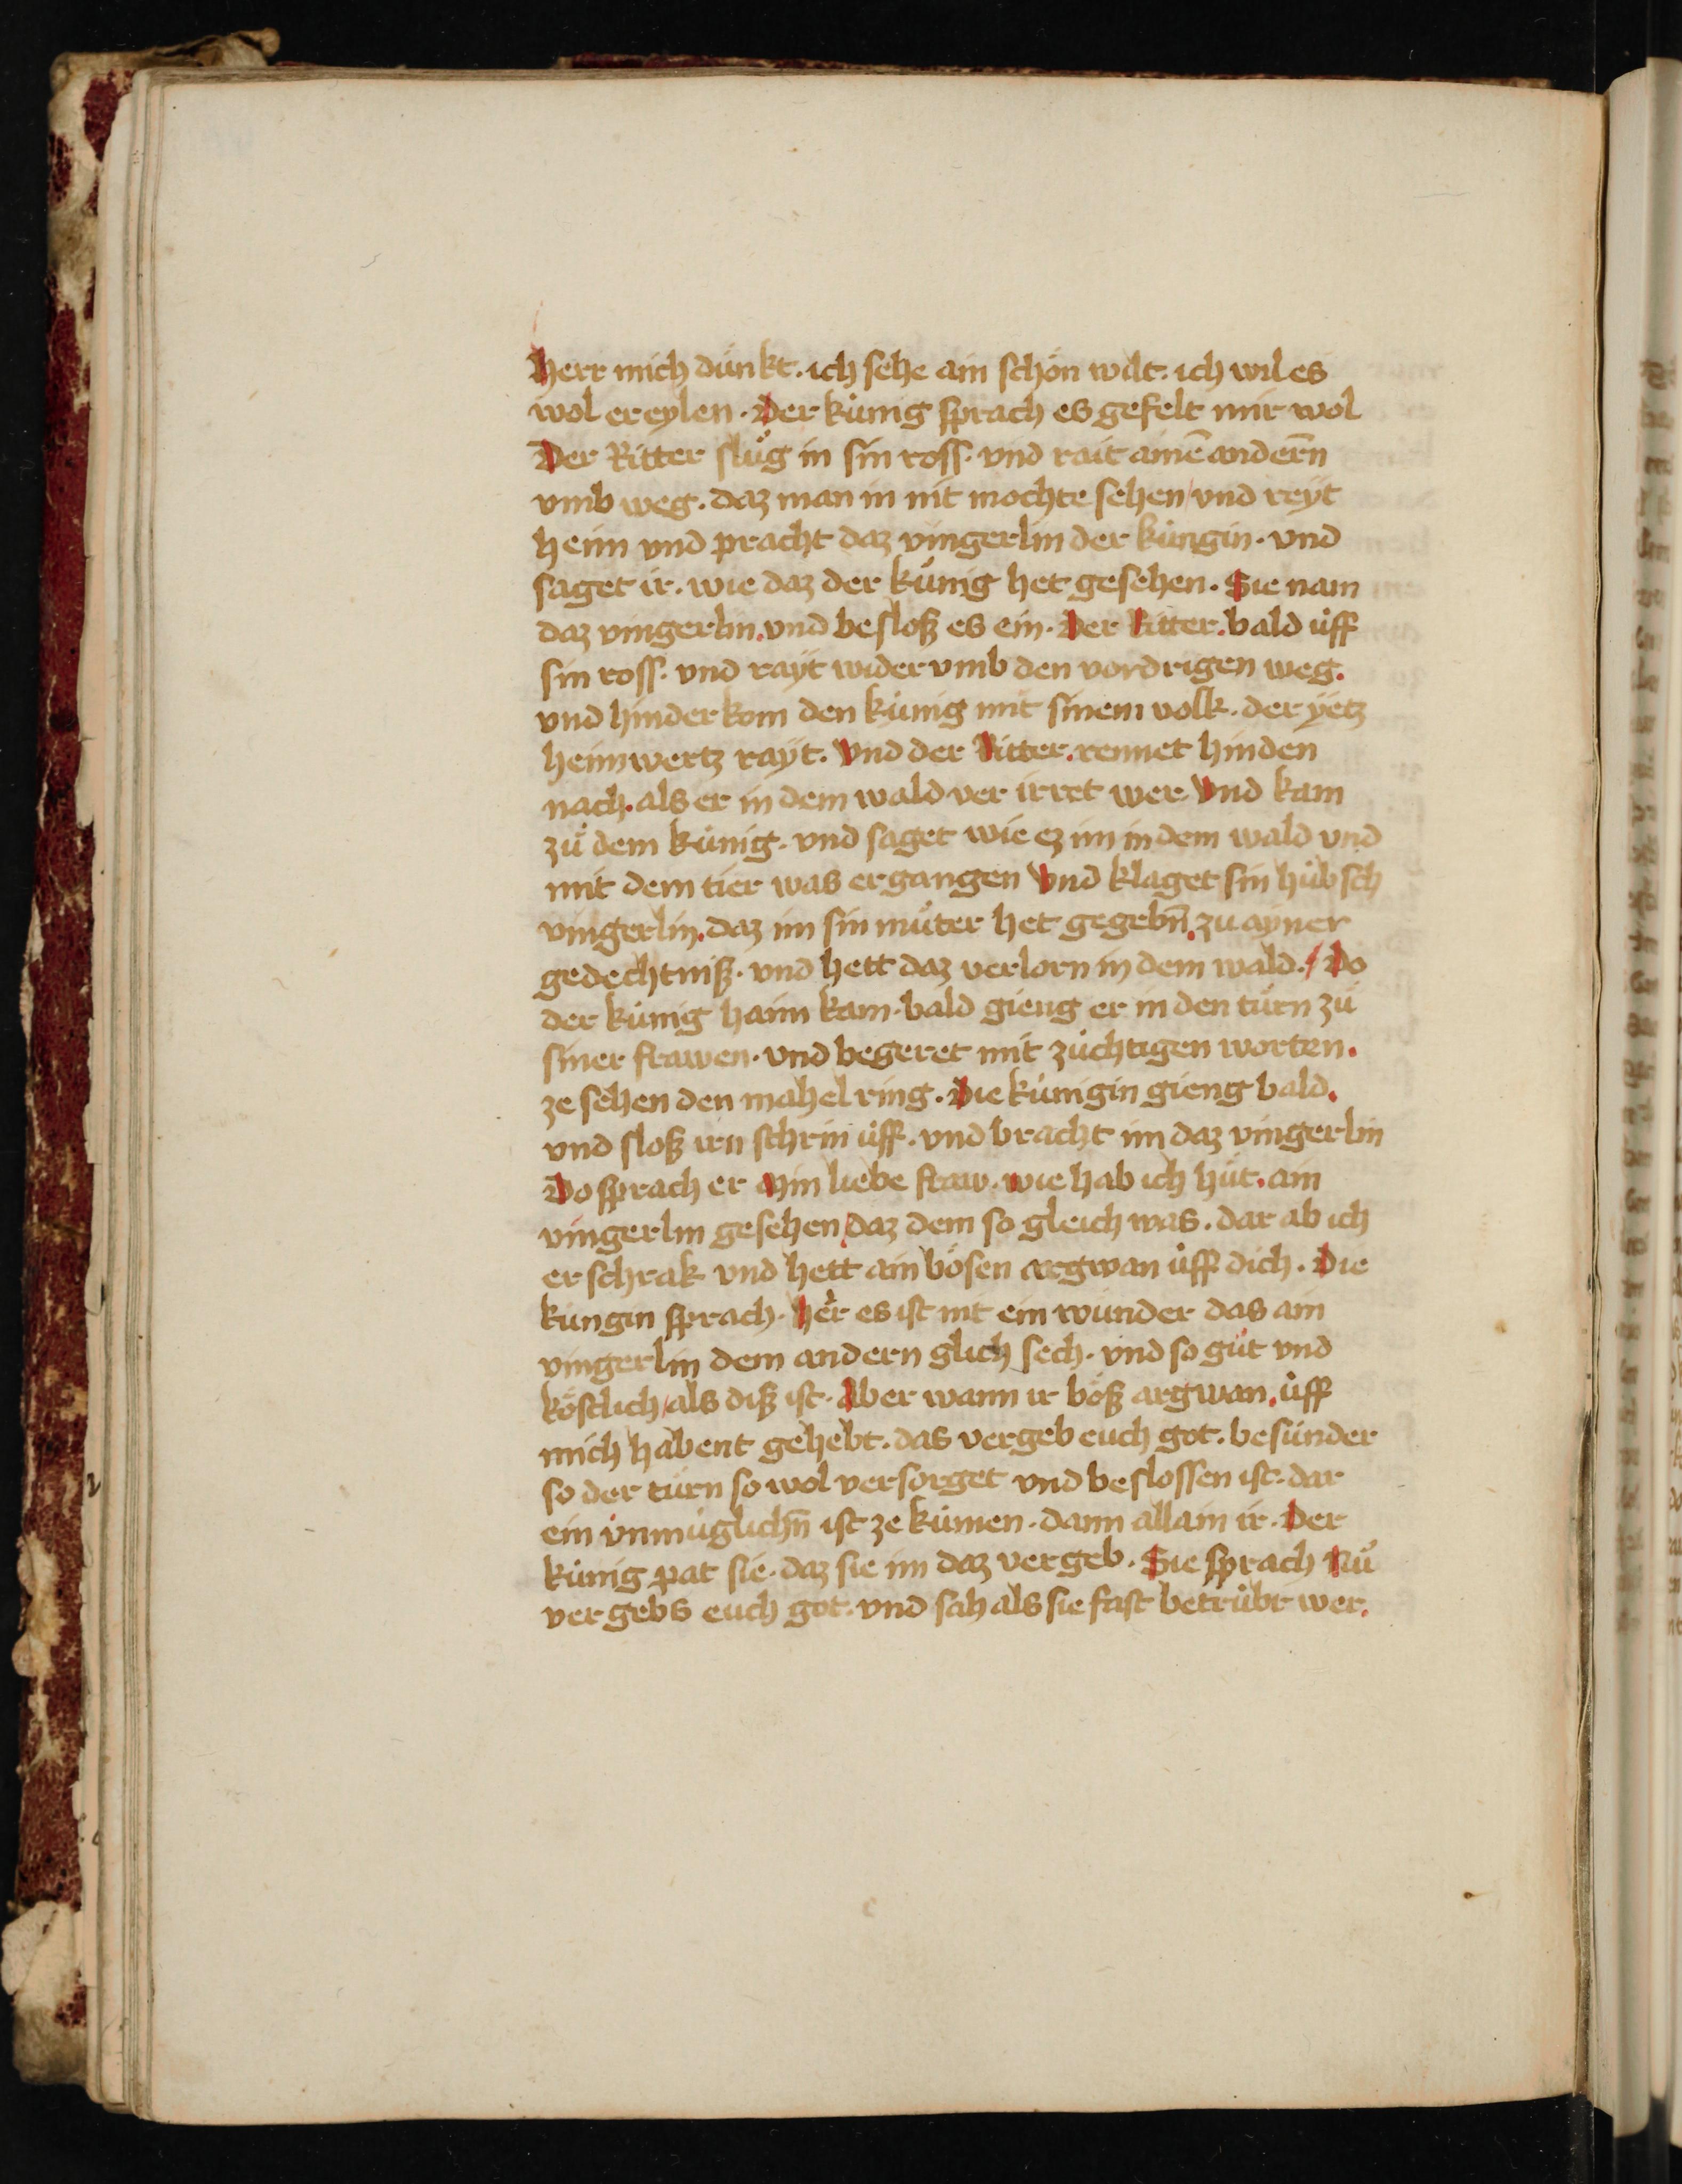 Herr mich dünkt. ich sehe ain schön wilt. ich wil es
wol ereylen. Der künig sprach es gefelt mir wol
Der Ritter slůg in sin ross. vnd rait ainē andern̄
vmb weg. daz man in nit mochte sehen/vnd reÿt
heim vnd pracht daz vingerlin der küngin. vnd
saget ir. wie daz der künig het gesehen. Sie nam
daz vingerlin. vnd besloß es ein. Der Ritter. bald üff
sin ross. vnd raÿt wider vmb den vordrigen weg.
vnd hinderkom den künig mit sinem volk. der ÿetz
heimwertz raÿt. Vnd der Ritter. rennet hinden
nach. als er in dem wald ver irret wer. Vnd kam
zů dem künig. vnd saget wie ez im in dem wald vnd
mit dem tier was ergangen Vnd klaget sin hübsch
vingerlin. daz im sin můter het gegebn̄. zu aÿner
gedechtniß. vnd hett daz verlorn in dem wald./ Do
der künig haim kam. bald gieng er in den turn zů
siner frawen. vnd begeret mit züchtigen worten.
ze sehen den mahel ring. Die künigin gieng bald.
vnd sloß irn schrin üff. vnd bracht im daz vingerlin
Do sprach er Min liebe fraw. wie hab ich hüt. ain
vingerlin gesehen/daz dem so gleich was. dar ab ich
er schrak vnd hett ain bösen argwan üff dich. Die
küngin sprach. Her es ist nit ein wunder das ain
vingerlin dem andern glich sech. vnd so gůt vnd
köstlich/als diß ist. Aber wann ir böß argwan. üff
mich habent gehebt. das vergeb euch got. besunder
so der turn so wol versorget vnd beslossen ist. dar
ein vnmüglichn̄ ist ze kumen. dann allain ir. Der
künig pat sie. daz sie im daz vergeb. Sie sprach Nů
vergebs euch got. vnd sah als sie fast betrübt wer.